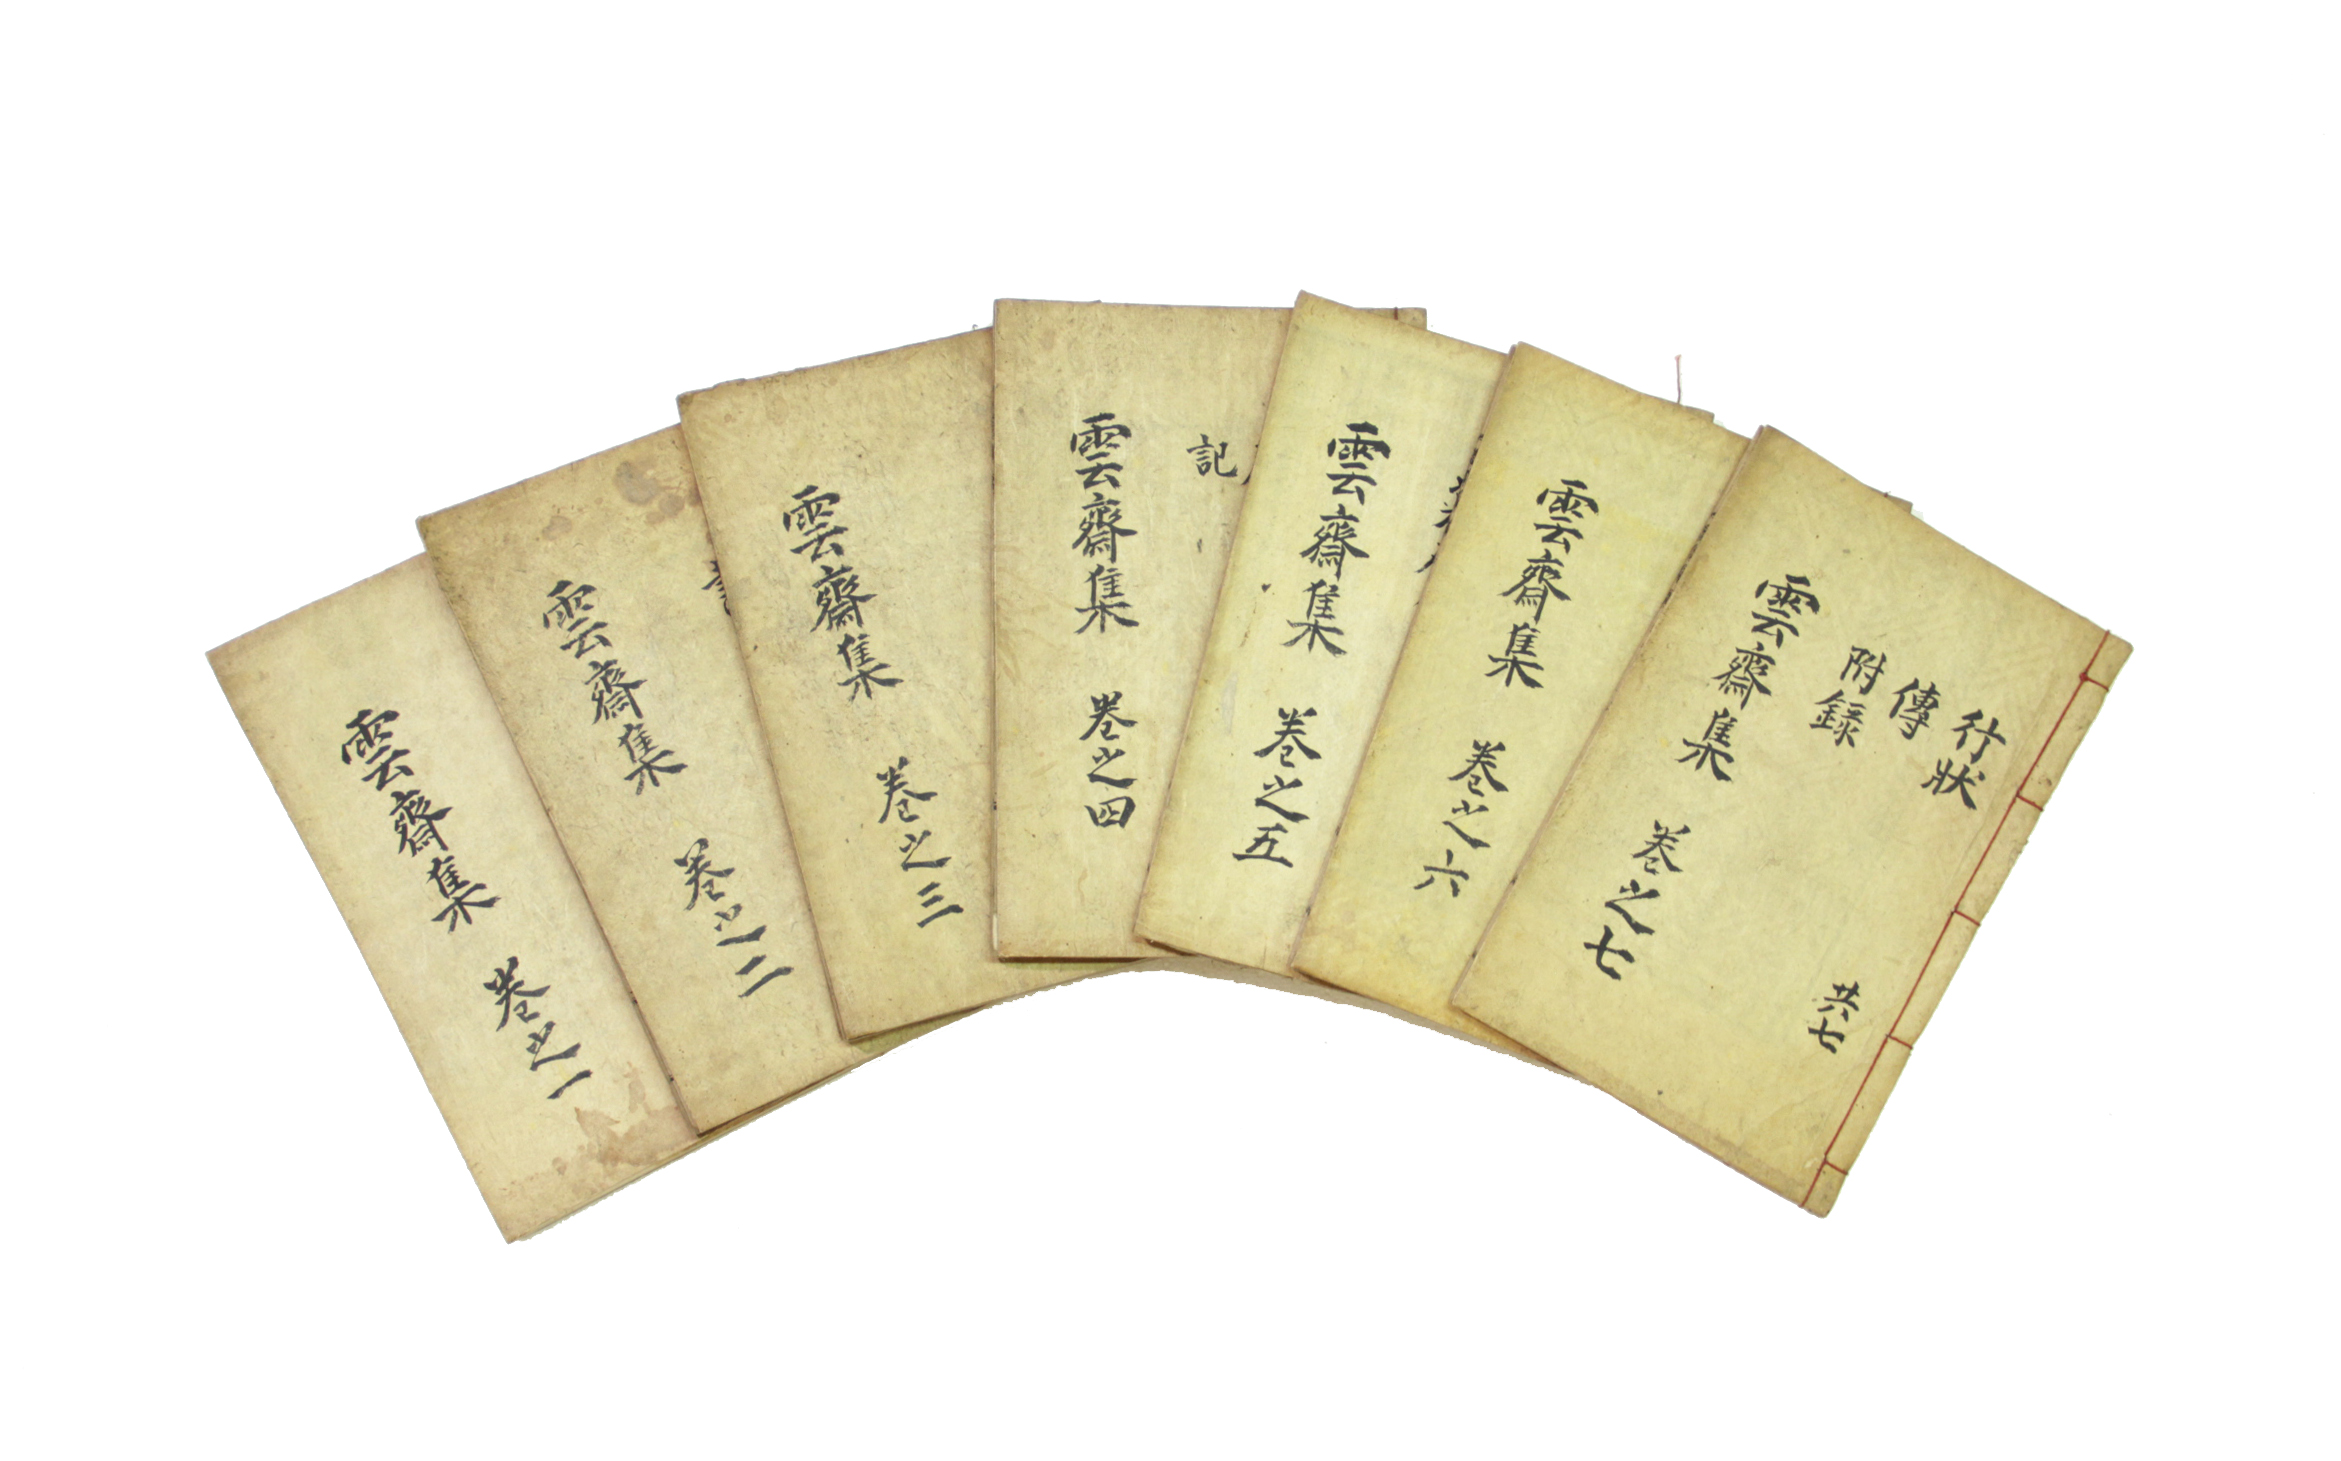 雲齋集 卷之一
雲齋集 卷之二
雲齋集 卷之三
雲齋集 卷之四
記
雲齋集 卷之五
雲齋集 卷之六
行狀
傳
附錄
雲齋集 卷之七
共七